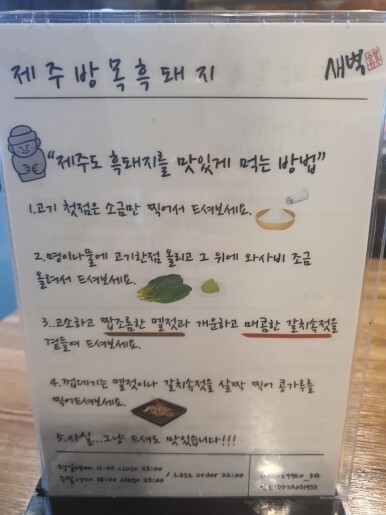 제주방목흑돼지
새벽
"제주도 흑돼지를 맛있게 먹는 방법"
1.고기 첫점은 소금만 찍어서 드셔보세요.
2.명이나물에 고기한점 올리고 그 위에 와사비 조금
올려서 드셔보세요.
3..고소하고 짭조름한 멜젓과 개운하고 매콤한 갈치속젓을
곁들여 드셔보세요.
4.껍데기는 멜젓이나 갈치속젓을 살짝 찍어 콩가루를
찍어드셔보세요.
5.사실...그냥 드셔도 맛있습니다!!!
close 23:00
/ Last order 22:00
close 23:00